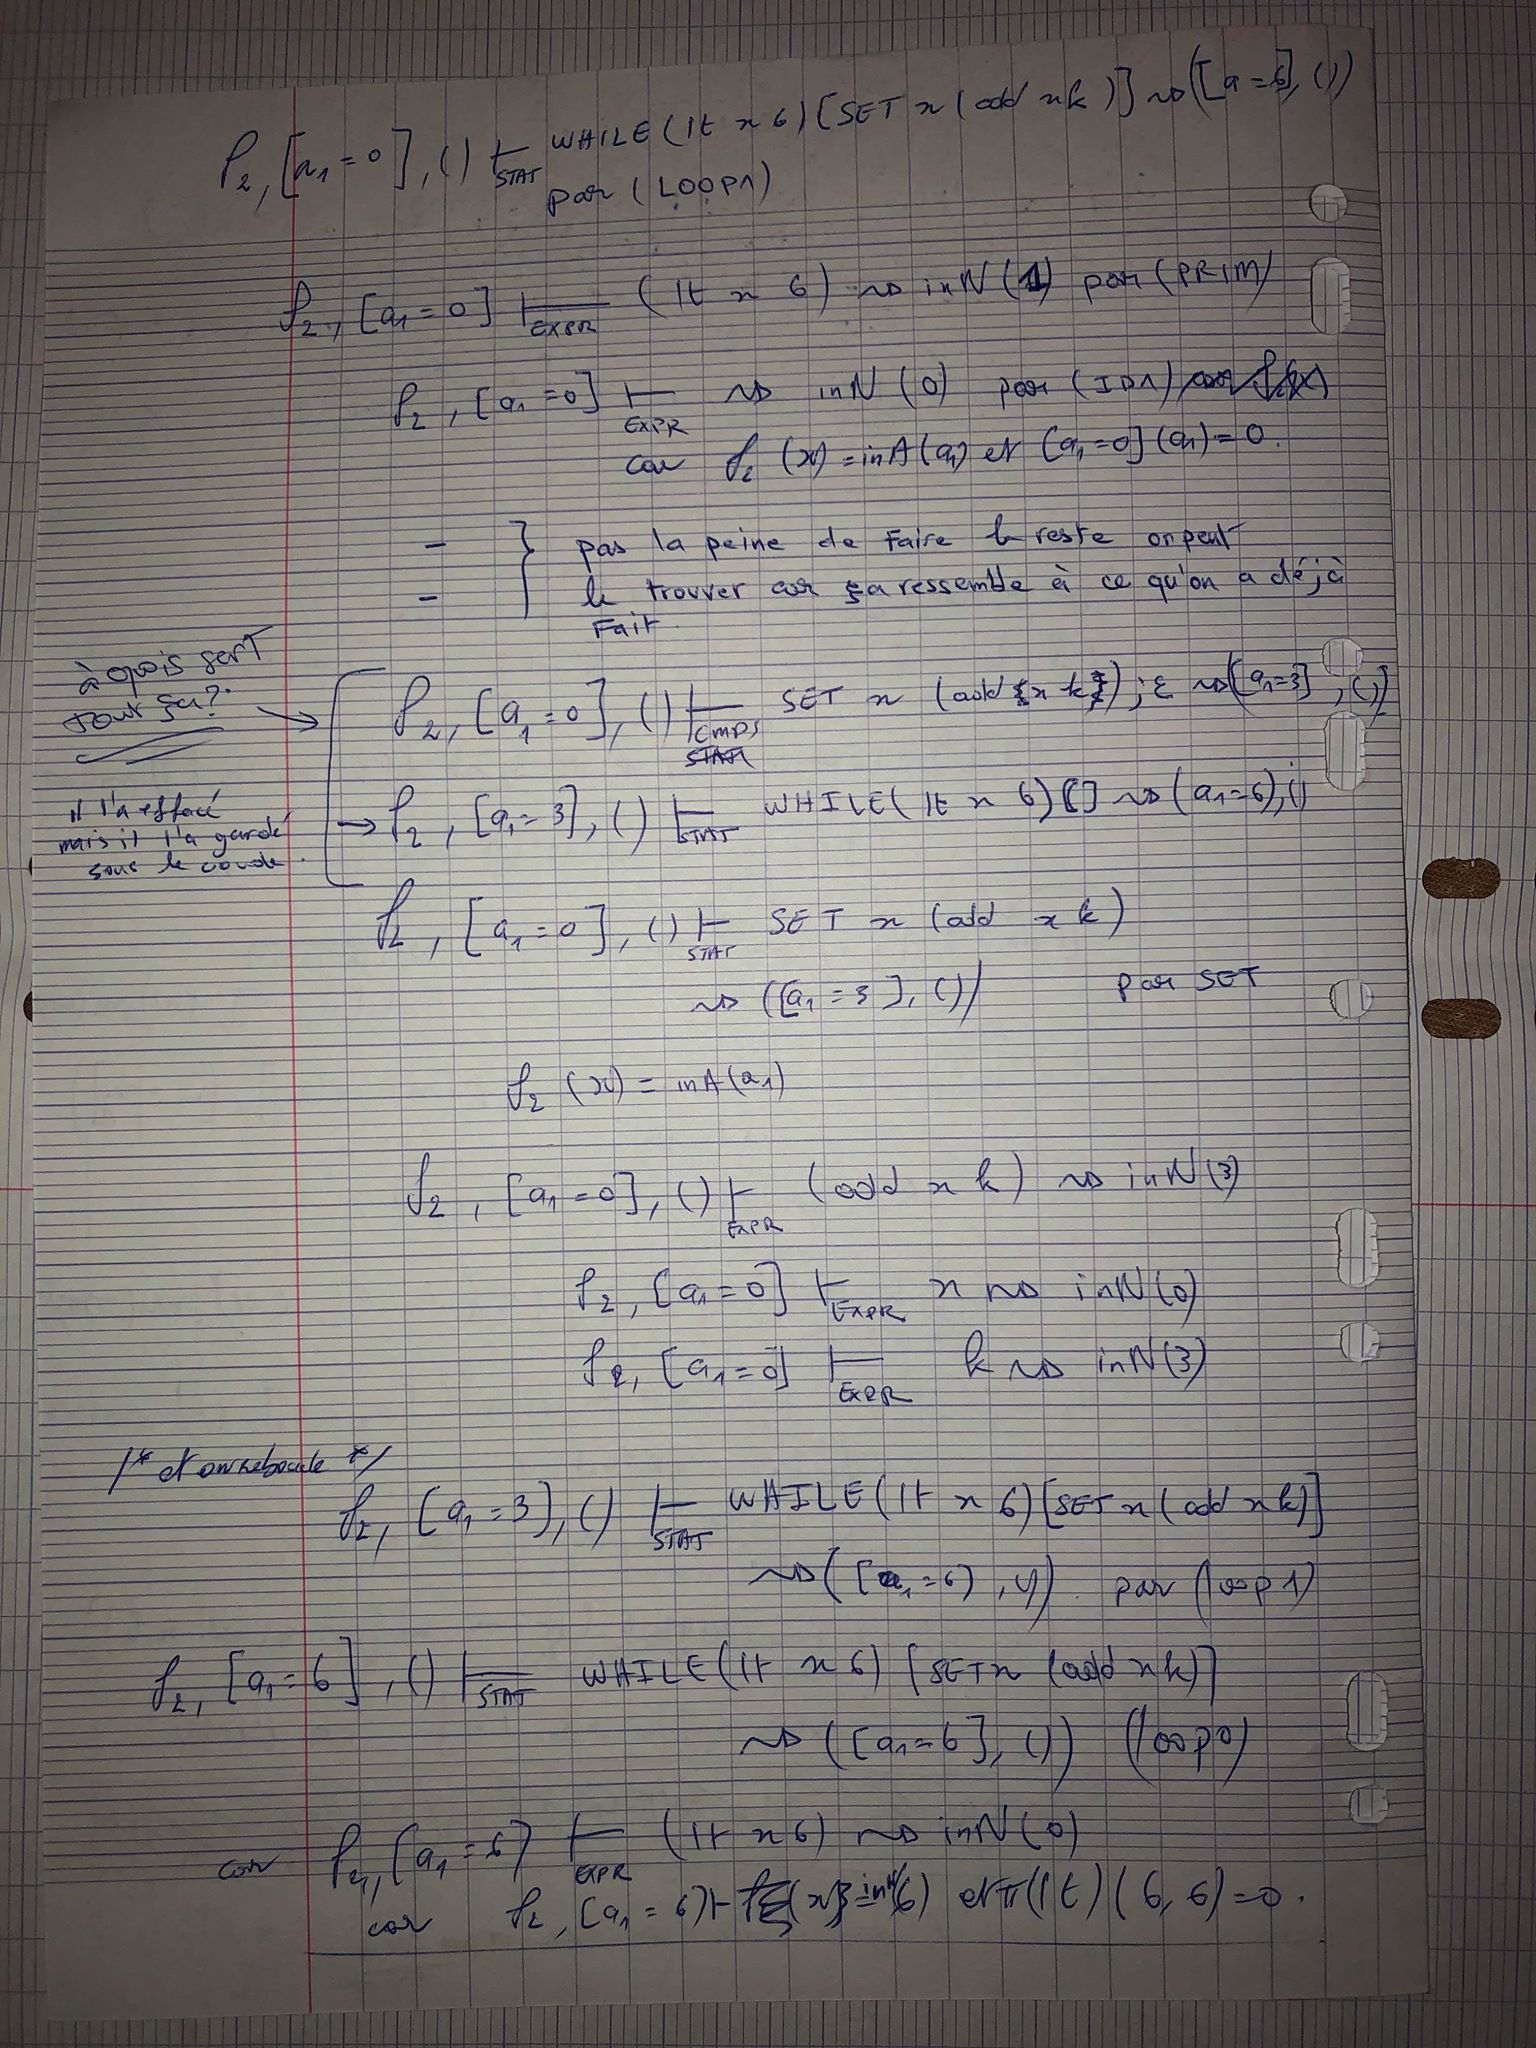 ρ₂, [a₁ = 0], () ⊢STAT WHILE (lt x 6) [SET x (add x k)] ⇝ ([a = 6], ())
par (LOOP1)
ρ₂, [a₁ = 0] ⊢EXPR (lt x 6) ⇝ inN (1) par (PRIM)
ρ₂, [a₁ = 0] ⊢EXPR ⇝ inN (0) par (ID1)
car ρ₂ (x) = inA(a₁) et [a₁ = 0] (a₁) = 0.
- } pas la peine de Faire le reste on peut
- le trouver car ça ressemble à ce qu'on a déjà
Fait.
à quois sert
tout ça?
ρ₂, [a₁ = 0], () ⊢CMDS SET x (add x k); ε ⇝ ([a₁ = 3], ())
il l'a effacé
mais il l'a gardé
sous le coude.
→ ρ₂, [a₁ = 3], () ⊢STAT WHILE (lt x 6) [] ⇝ (a₁ = 6), ()
ρ₂, [a₁ = 0], () ⊢STAT SET x (add x k)
⇝ ([a₁ = 3], ()) par SET
ρ₂ (x) = inA (a₁)
ρ₂, [a₁ = 0], () ⊢EXPR (add x k) ⇝ inN (3)
ρ₂, [a₁ = 0] ⊢EXPR x ⇝ inN (0)
ρ₂, [a₁ = 0] ⊢EXPR k ⇝ inN (3)
/* et on reboucle */
ρ₂, [a₁ = 3], () ⊢STAT WHILE (lt x 6) [SET x (add x k)]
⇝ ([a₁ = 6), ()) par (loop 1)
ρ₂, [a₁ = 6], () ⊢STAT WHILE (lt x 6) [SET x (add x k)]
⇝ ([a₁ = 6], ()) (loop 0)
car ρ₂, [a₁ = 6] ⊢EXPR (lt x 6) ⇝ inN (0)
car ρ₂, [a₁ = 6) ⊢ (x) = inN(6) et π(lt) (6, 6) = 0.